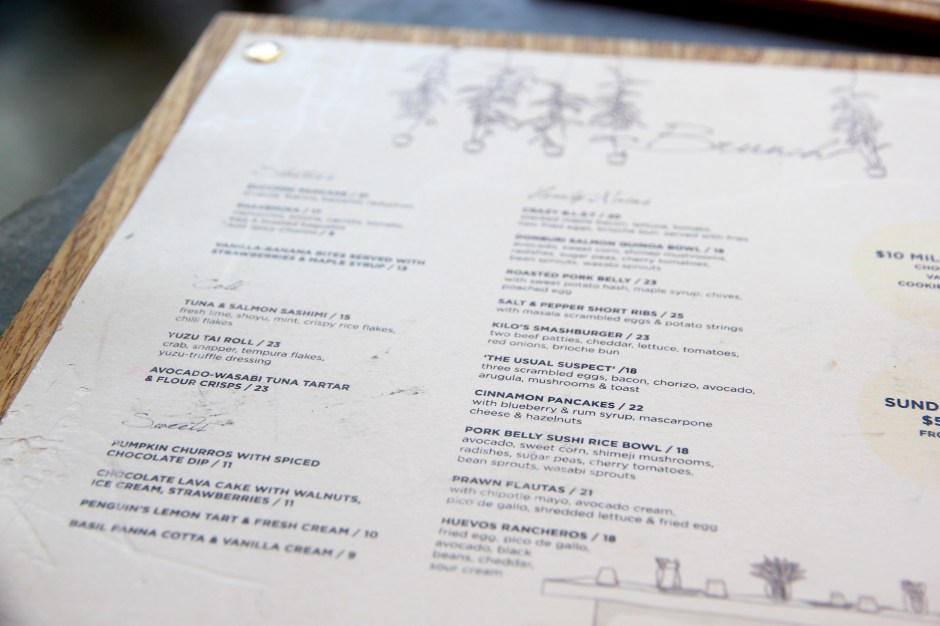 Brunch
VANILLA-BANANA BITES SERVED WITH
STRAWBERRIES & MAPLE SYRUP / 13
Cold
TUNA & SALMON SASHIMI / 15
fresh lime, shoyu, mint, crispy rice flakes,
chilli flakes
YUZU TAI ROLL / 23
crab, snapper, tempura flakes,
yuzu-truffle dressing
AVOCADO-WASABI TUNA TARTAR
& FLOUR CRISPS / 23
Sweets
PUMPKIN CHURROS WITH SPICED
CHOCOLATE DIP / 11
CHOCOLATE LAVA CAKE WITH WALNUTS,
ICE CREAM, STRAWBERRIES / 11
PENGUIN'S LEMON TART & FRESH CREAM / 10
BASIL PANNA COTTA & VANILLA CREAM / 9
CRAZY B.L.A.T / 20
DONBURI SALMON QUINOA BOWL / 18
avocado, sweet corn, shimeji mushrooms,
radishes, sugar peas, cherry tomatoes,
bean sprouts, wasabi sprouts
ROASTED PORK BELLY / 23
with sweet potato hash, maple syrup, chives,
poached egg
SALT & PEPPER SHORT RIBS / 25
with masala scrambled eggs & potato strings
KILO'S SMASHBURGER / 23
two beef patties, cheddar, lettuce, tomatoes,
red onions, brioche bun
'THE USUAL SUSPECT' /18
three scrambled eggs, bacon, chorizo, avocado,
arugula, mushrooms & toast
CINNAMON PANCAKES / 22
with blueberry & rum syrup, mascarpone
cheese & hazelnuts
PORK BELLY SUSHI RICE BOWL / 18
avocado, sweet corn, shimeji mushrooms,
radishes, sugar peas, cherry tomatoes,
bean sprouts, wasabi sprouts
PRAWN FLAUTAS / 21
with chipotle mayo, avocado cream,
pico de gallo, shredded lettuce & fried egg
HUEVOS RANCHEROS / 18
fried egg, pico de gallo,
avocado, black
beans, cheddar,
sour cream
$10 MIL
CHO
VA
COOKIE
SUND
$5
FRO